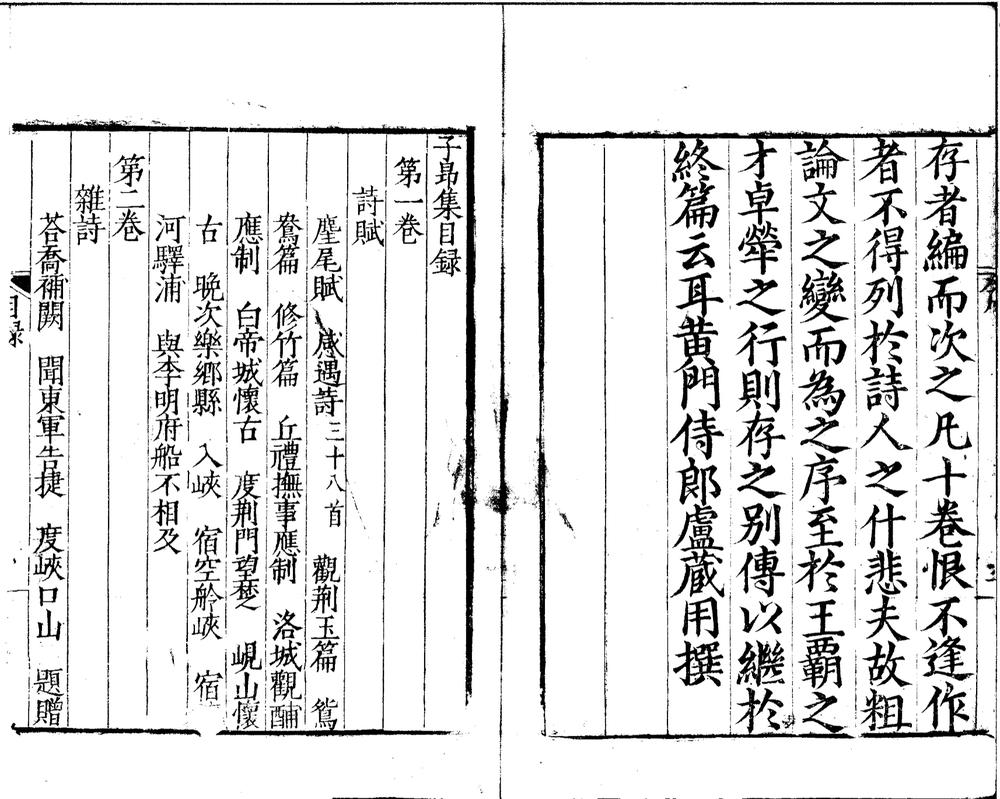 存者編而次之凡十卷恨不逢作
者不得列於詩人之什悲夫故粗
論文之變而為之序至於王霸之
才卓犖之行則存之別傳以繼於
終篇云耳黄門侍郎盧蔵用撰
子昻集目録
第一巻
詩賦
麈尾賦 感遇詩三十八首 觀荆玉篇 鴛
鴦篇 修竹篇 丘禮撫事應制 洛城觀酺
應制 白帝城懷古 度荆門望楚 峴山懷
古 晚次樂鄉縣 入峽 宿空舲峽 宿
河驛浦 與李明府船不相及
第二巻
雜詩
荅喬補闕 聞東軍告捷 度峽口山 題贈
目録